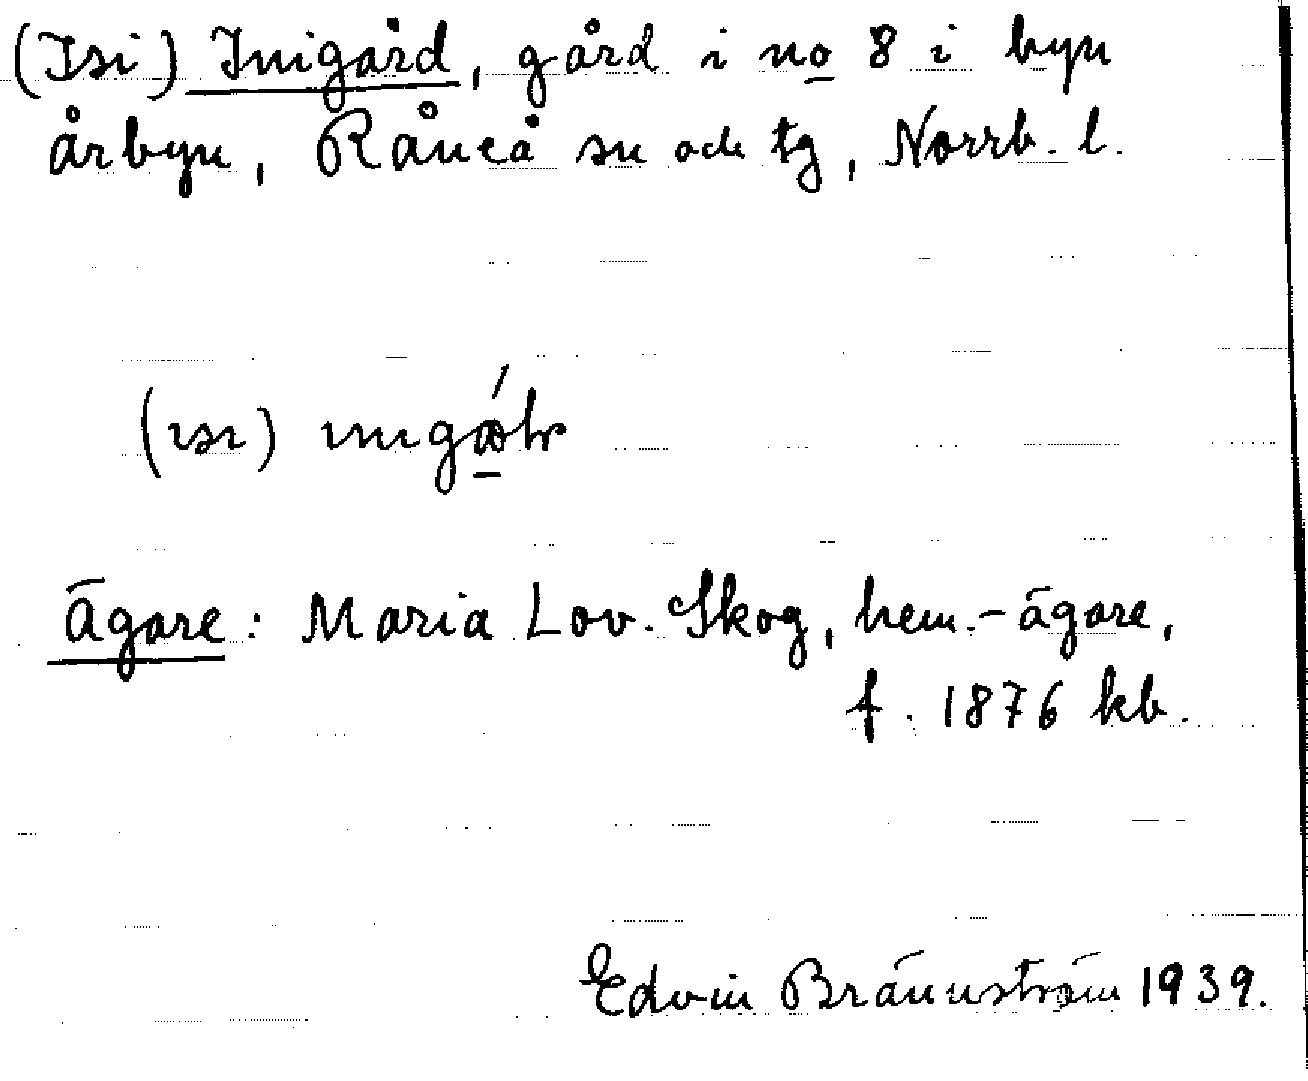 (Isi) Inigård, gård i no 8 i byn
årbyn, Råneå sn och tg, Norrb. l.
Ägare: Maria Lov. Skog, hem.-ägare,
f. 1876 kb.
Edvin Brännström 1939.